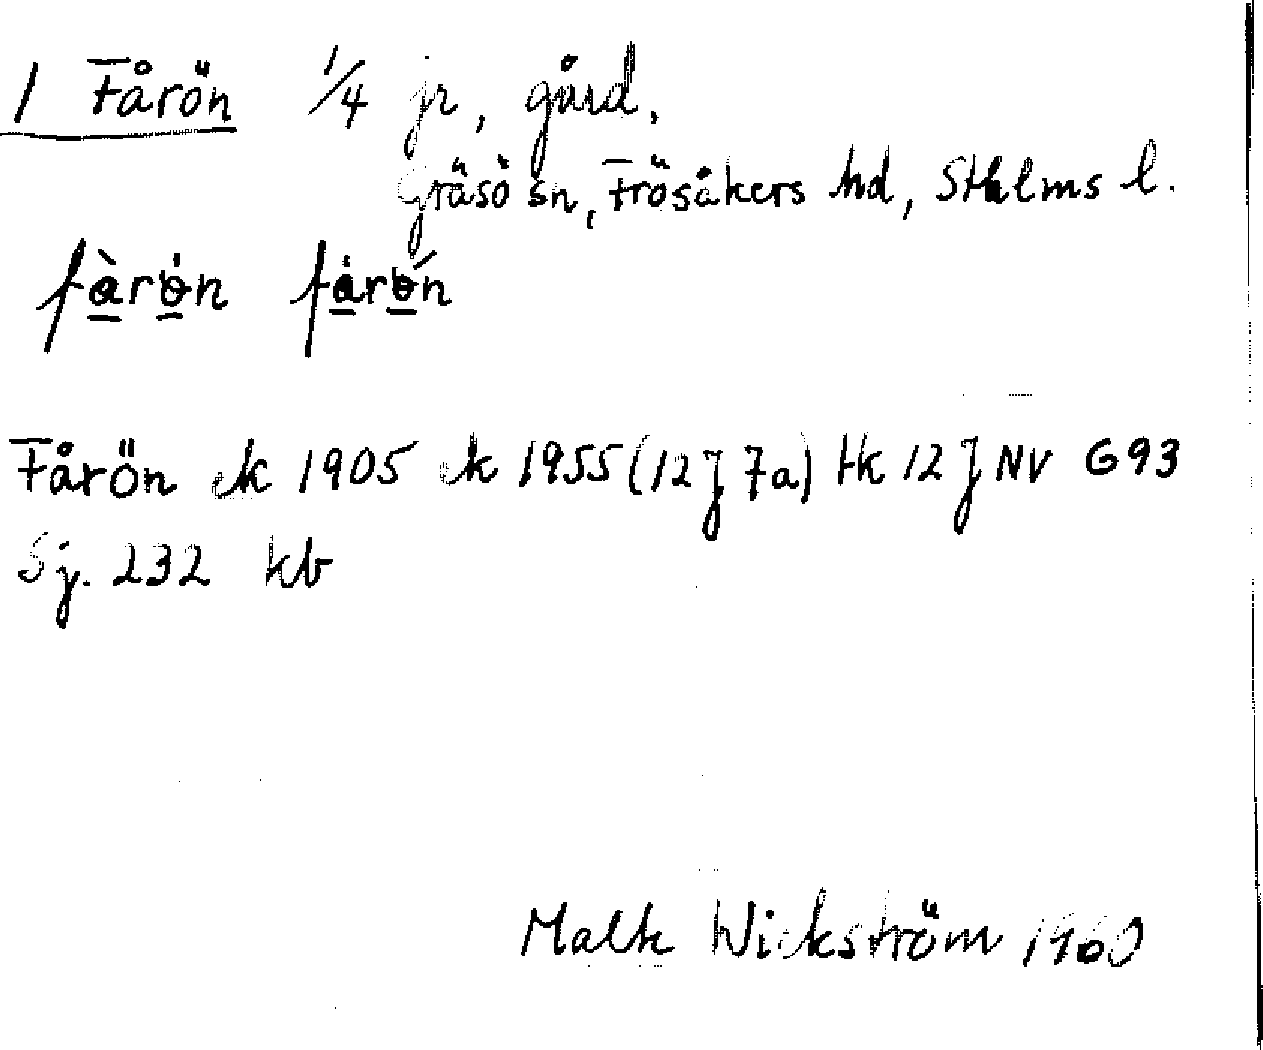 1 Fårön 1/4 jr, gård.
Gräsö sn, Frösåkers hd, Sthlms l.
fàrön fȧrón
Fårön ek 1905 ek 1955 (12 J 7a) tk 12 J NV G93
Sj. 232 kb
Wickström 1960